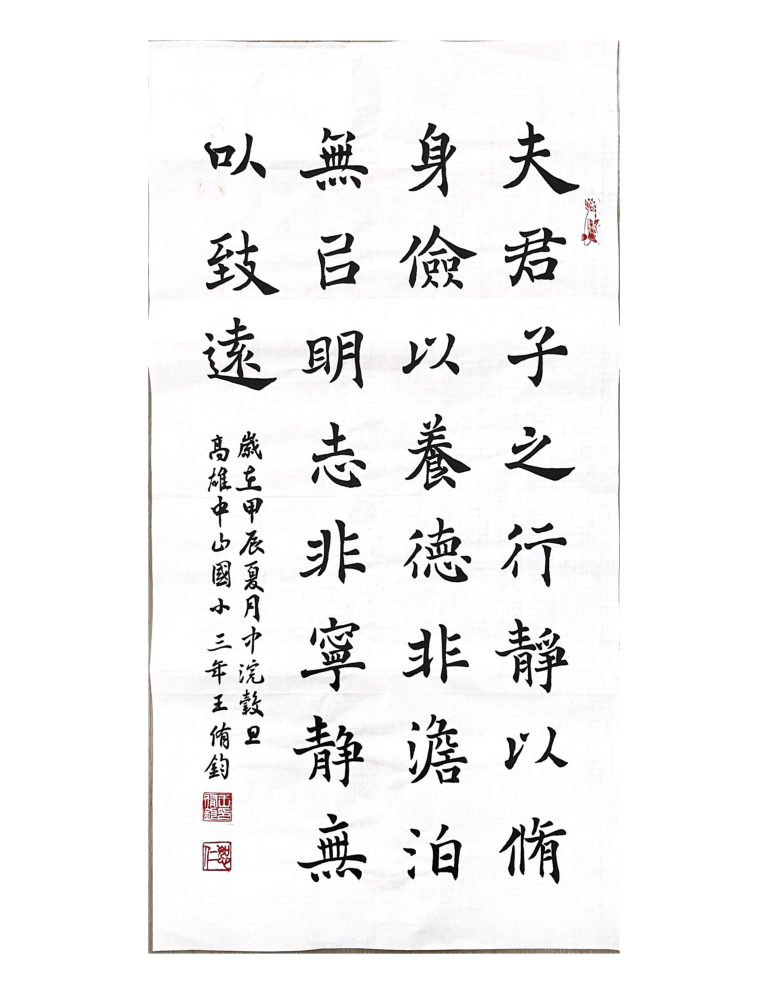 夫君子之行靜以脩
身儉以養德非澹泊
無㠯明志非寧静無
以致遠
歲在甲辰夏月中浣穀旦
高雄中山國小三年王侑鈞